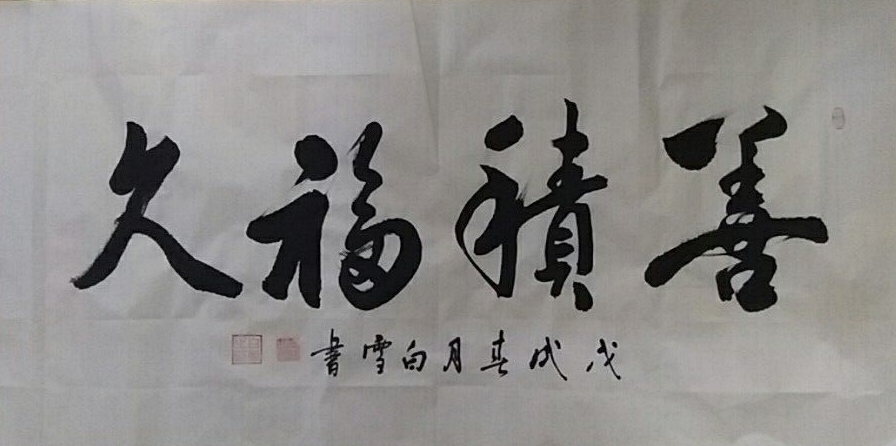 善積福久
戊戌春月白雪書